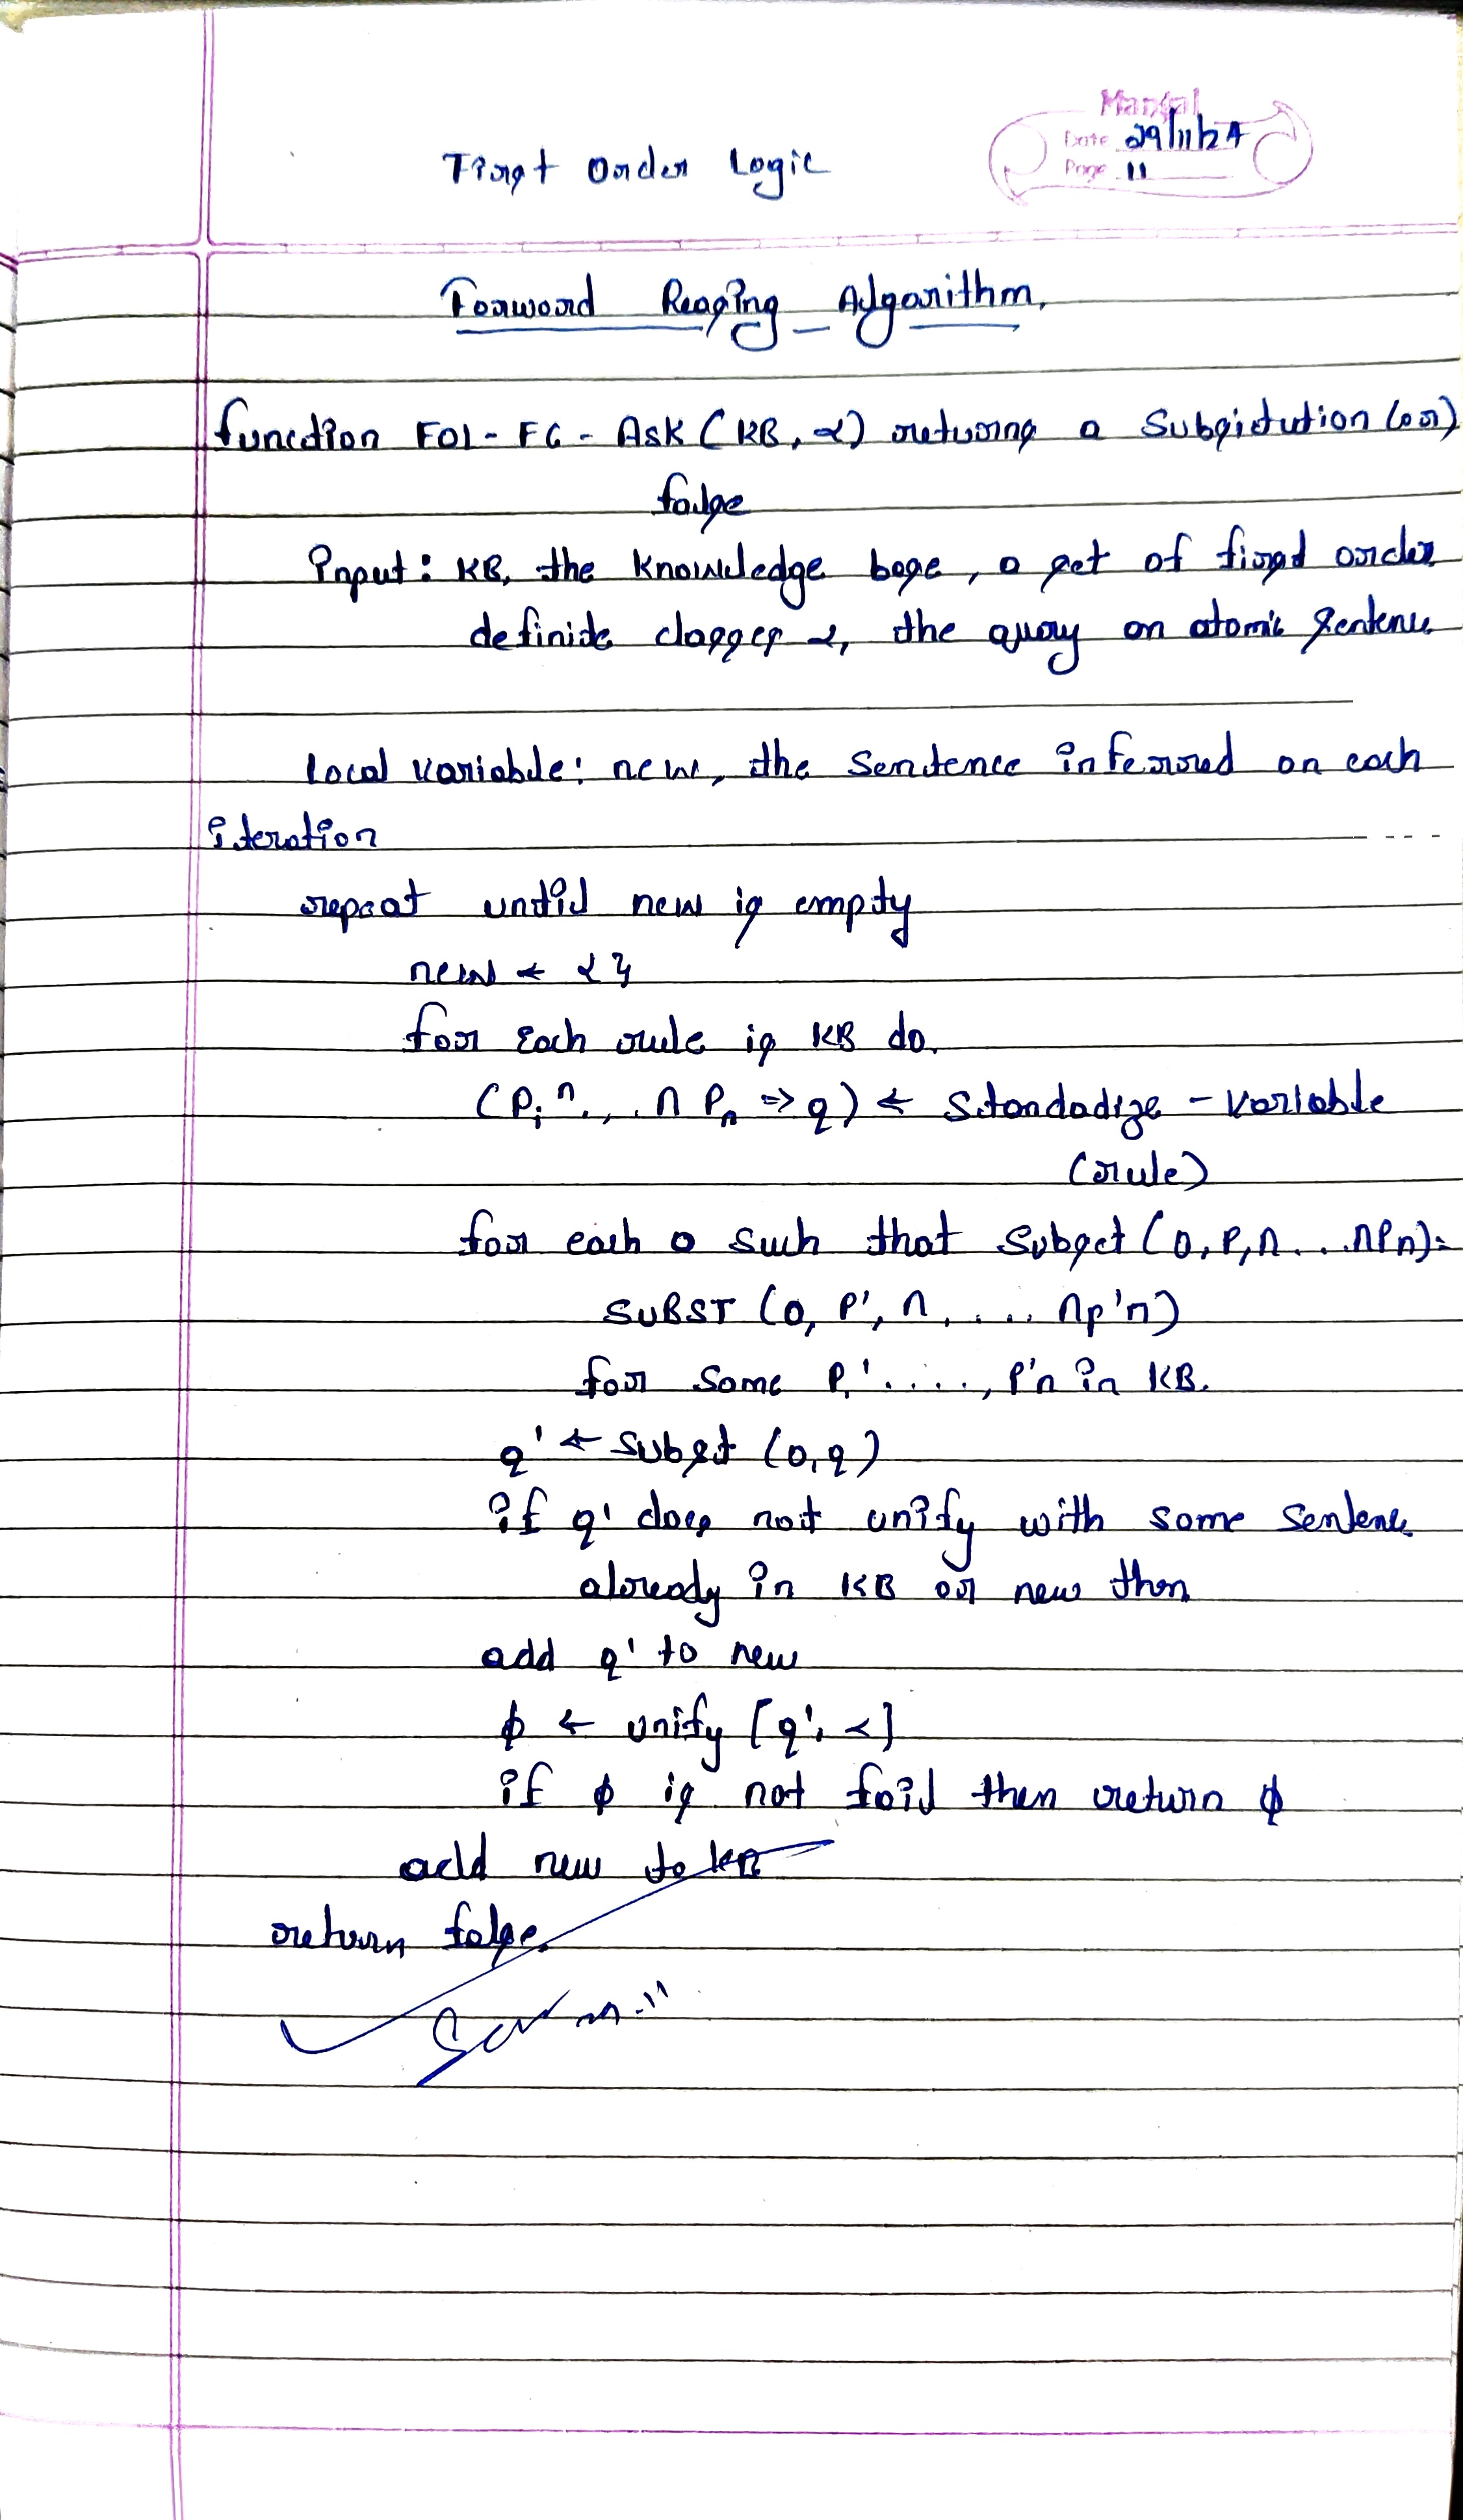 Mangal
Date 29/11/24
Page 11
First Order Logic
Forword Reasing Algorithm.
function FOL - FC - Ask (KB, α) returns a Subsitution (or)
false
Input: KB, the knowledge base, a set of first order
definite classes α, the query an atomic sentence
local variable: new, the sentence inferred on each
iteration
repeat until new is empty
new ← { }
for each rule is KB do.
(P₁ ∩ ... ∩ Pₙ => q) ← Standadize - Variable
(rule)
for each θ such that Subset (θ, P₁ ∩ ... ∩ Pn) =
SUBST (θ, P', ∩, .... ∩ p'n)
for some P₁' ....., P'n in KB.
q' ← subst (θ, q)
if q' does not unify with some sentence
already in KB or new then
add q' to new
φ ← unify [q', α]
if φ is not fail then return φ
add new to KB
return false.